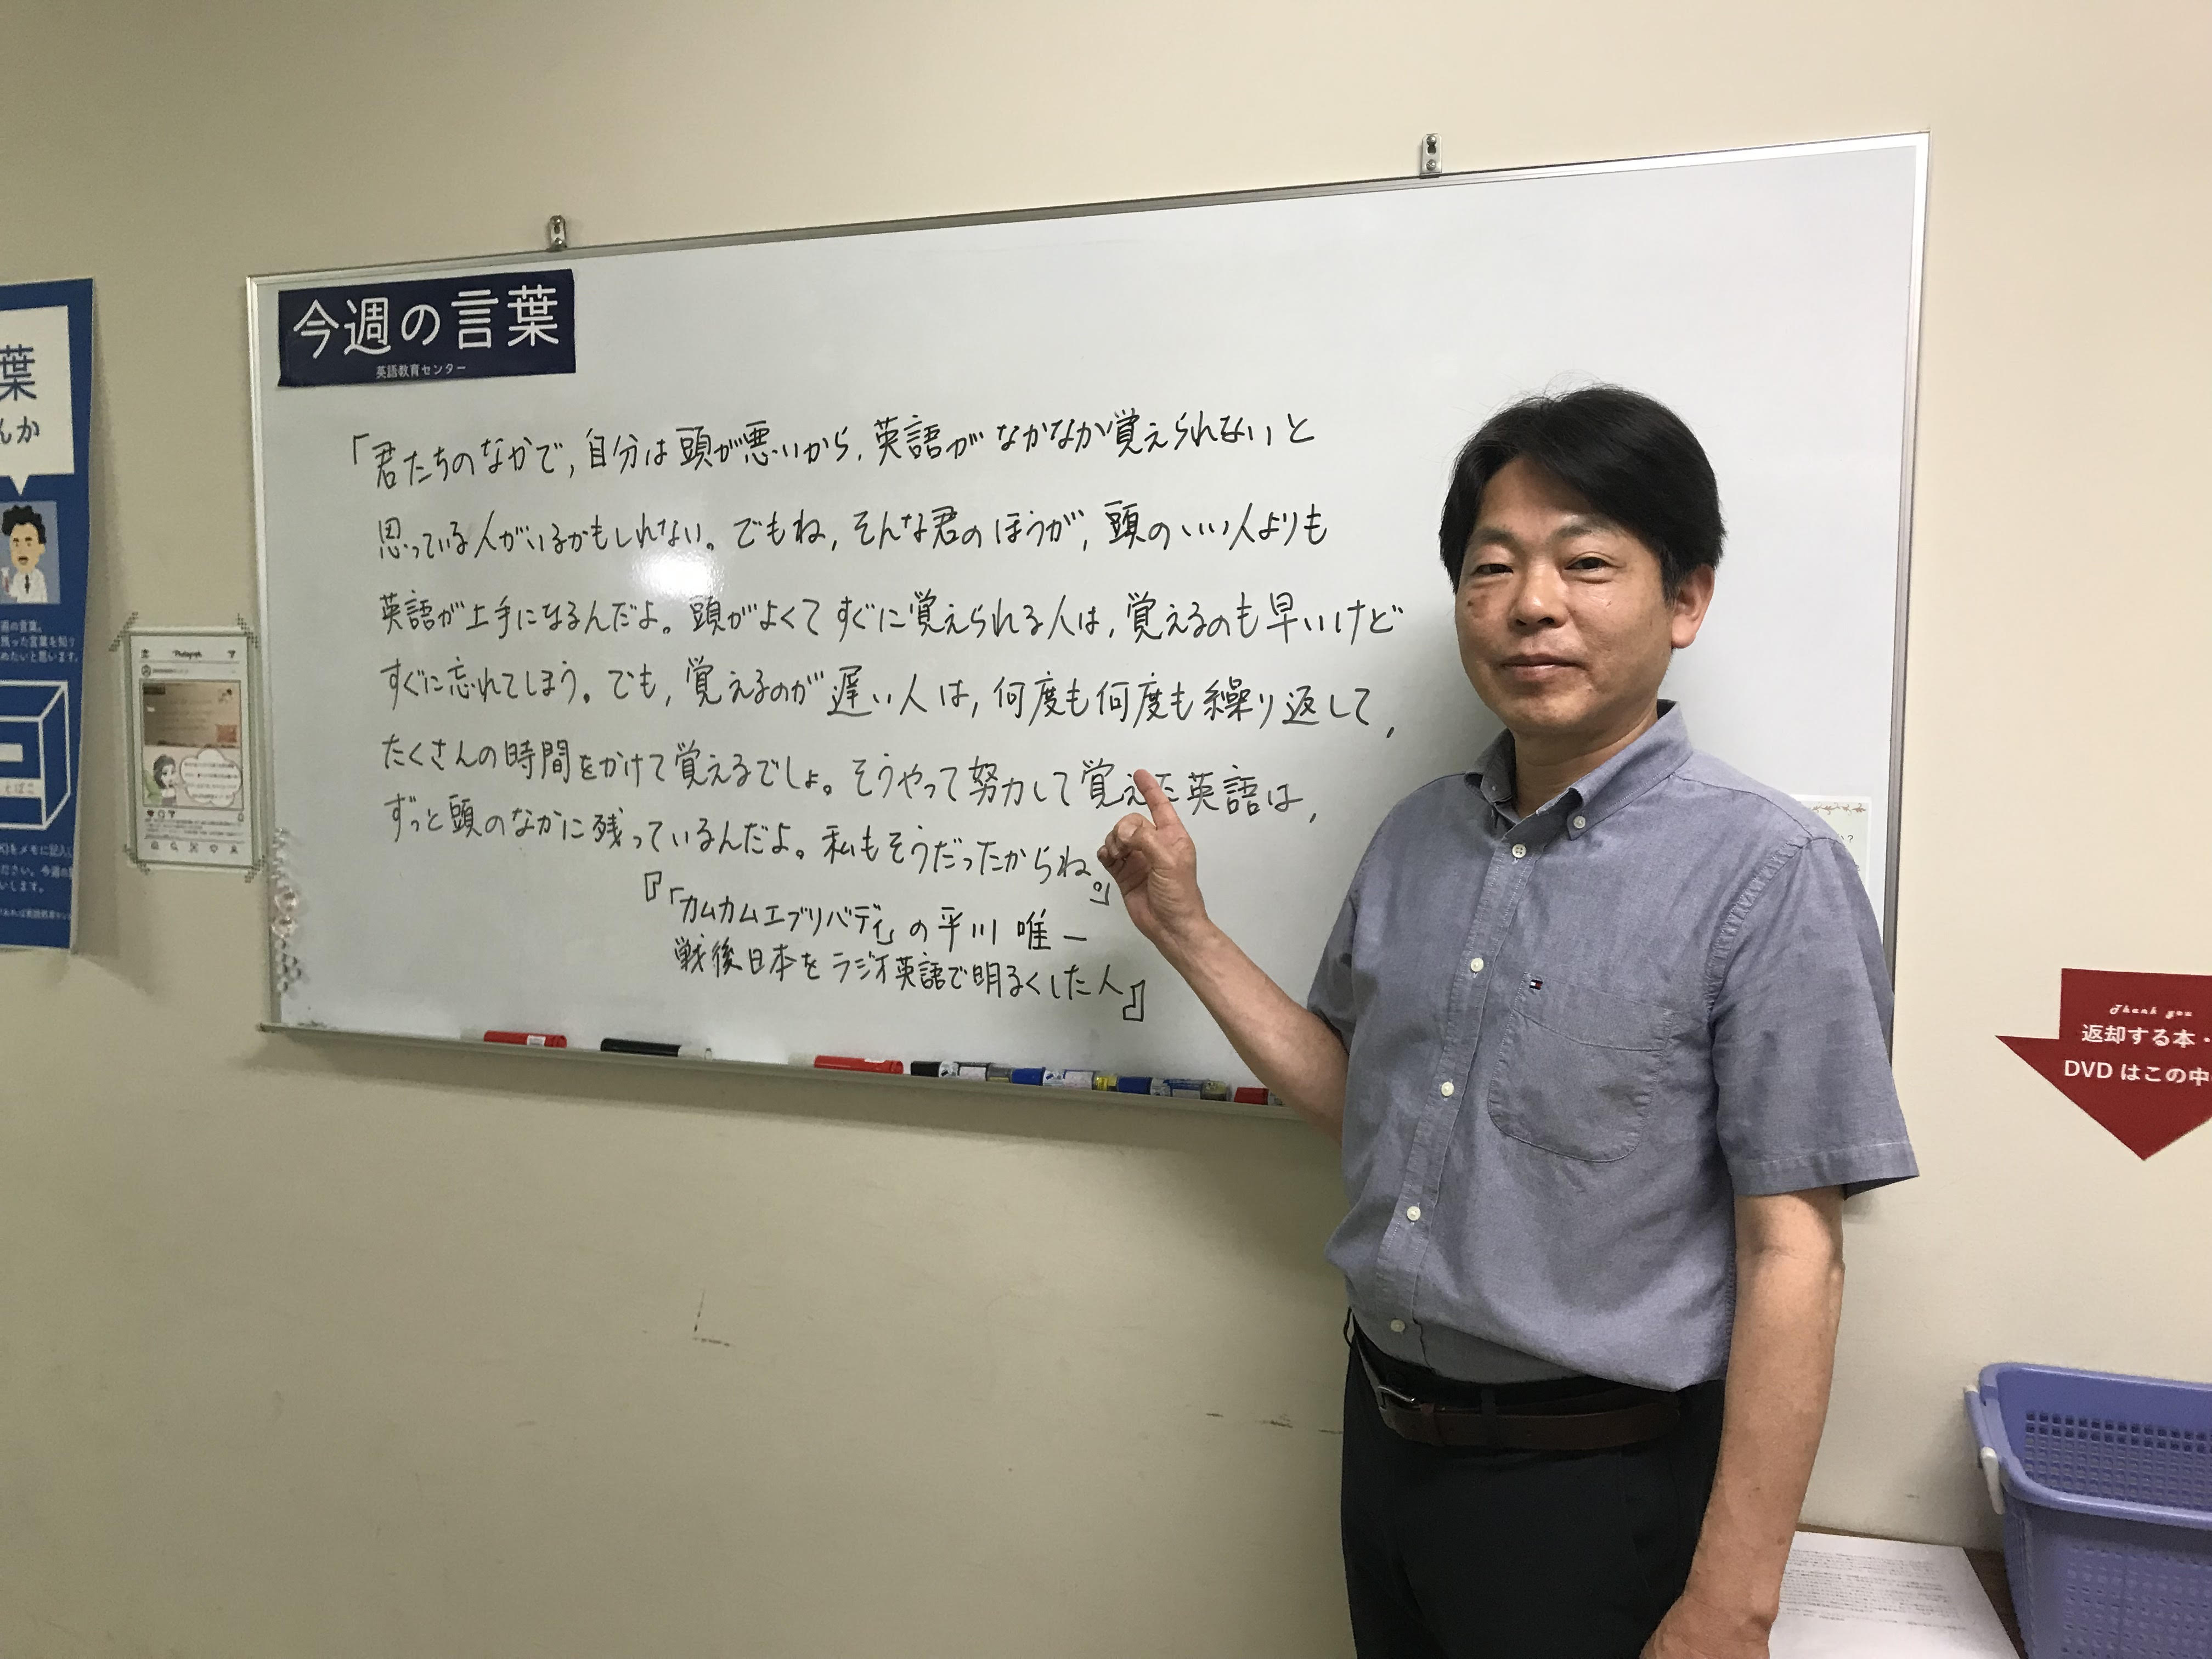 今週の言葉
英語教育センター
「君たちのなかで,自分は頭が悪いから,英語がなかなか覚えられないと
思っている人がいるかもしれない。でもね,そんな君のほうが,頭のいい人よりも
英語が上手になるんだよ。頭がよくてすぐに覚えられる人は,覚えるのも早いけど
すぐに忘れてしまう。でも,覚えるのが遅い人は,何度も何度も繰り返して,
たくさんの時間をかけて覚えるでしょ。そうやって努力して覚えた英語は,
ずっと頭のなかに残っているんだよ。私もそうだったからね。」
『「カムカムエブリバディ」の平川 唯一
戦後日本をラジオ英語で明るくした人』
葉
んか
週の言葉。
残った言葉を知り
めたいと思います。
とばこ
をメモに記入し
ださい。今週の
いします。
Photograph
Thank you
返却する本・
DVD はこの中